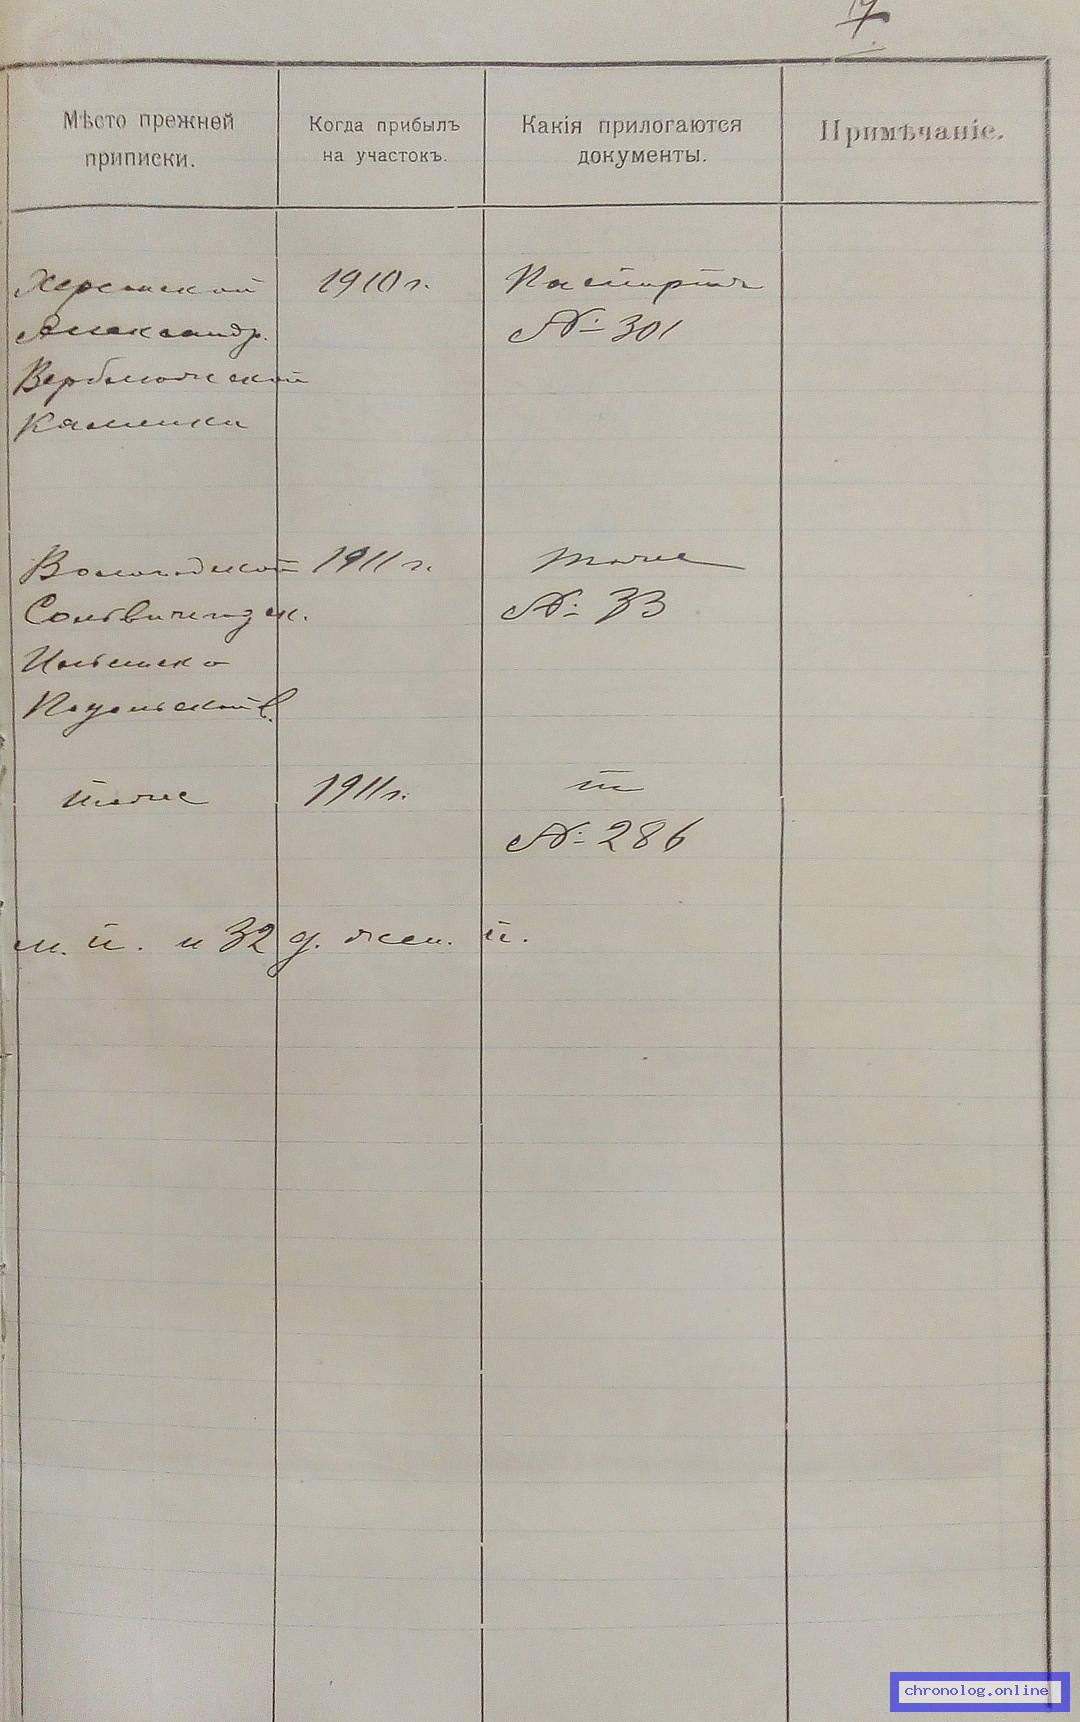 17
Мѣсто прежней
приписки.
Когда прибылъ
на участокъ.
Какія прилогаются
документы.
Примѣчаніе.
Херсонской 1910 г. Паспортъ
Александр. № 301
Каменки
Вологодской 1911 г. тоже
Сольвычегодск. № 33
Ильинско
Подольской в.
тоже 1911 г. т
№ 286
м. п. и 32 д. жен. п.
chronolog.online